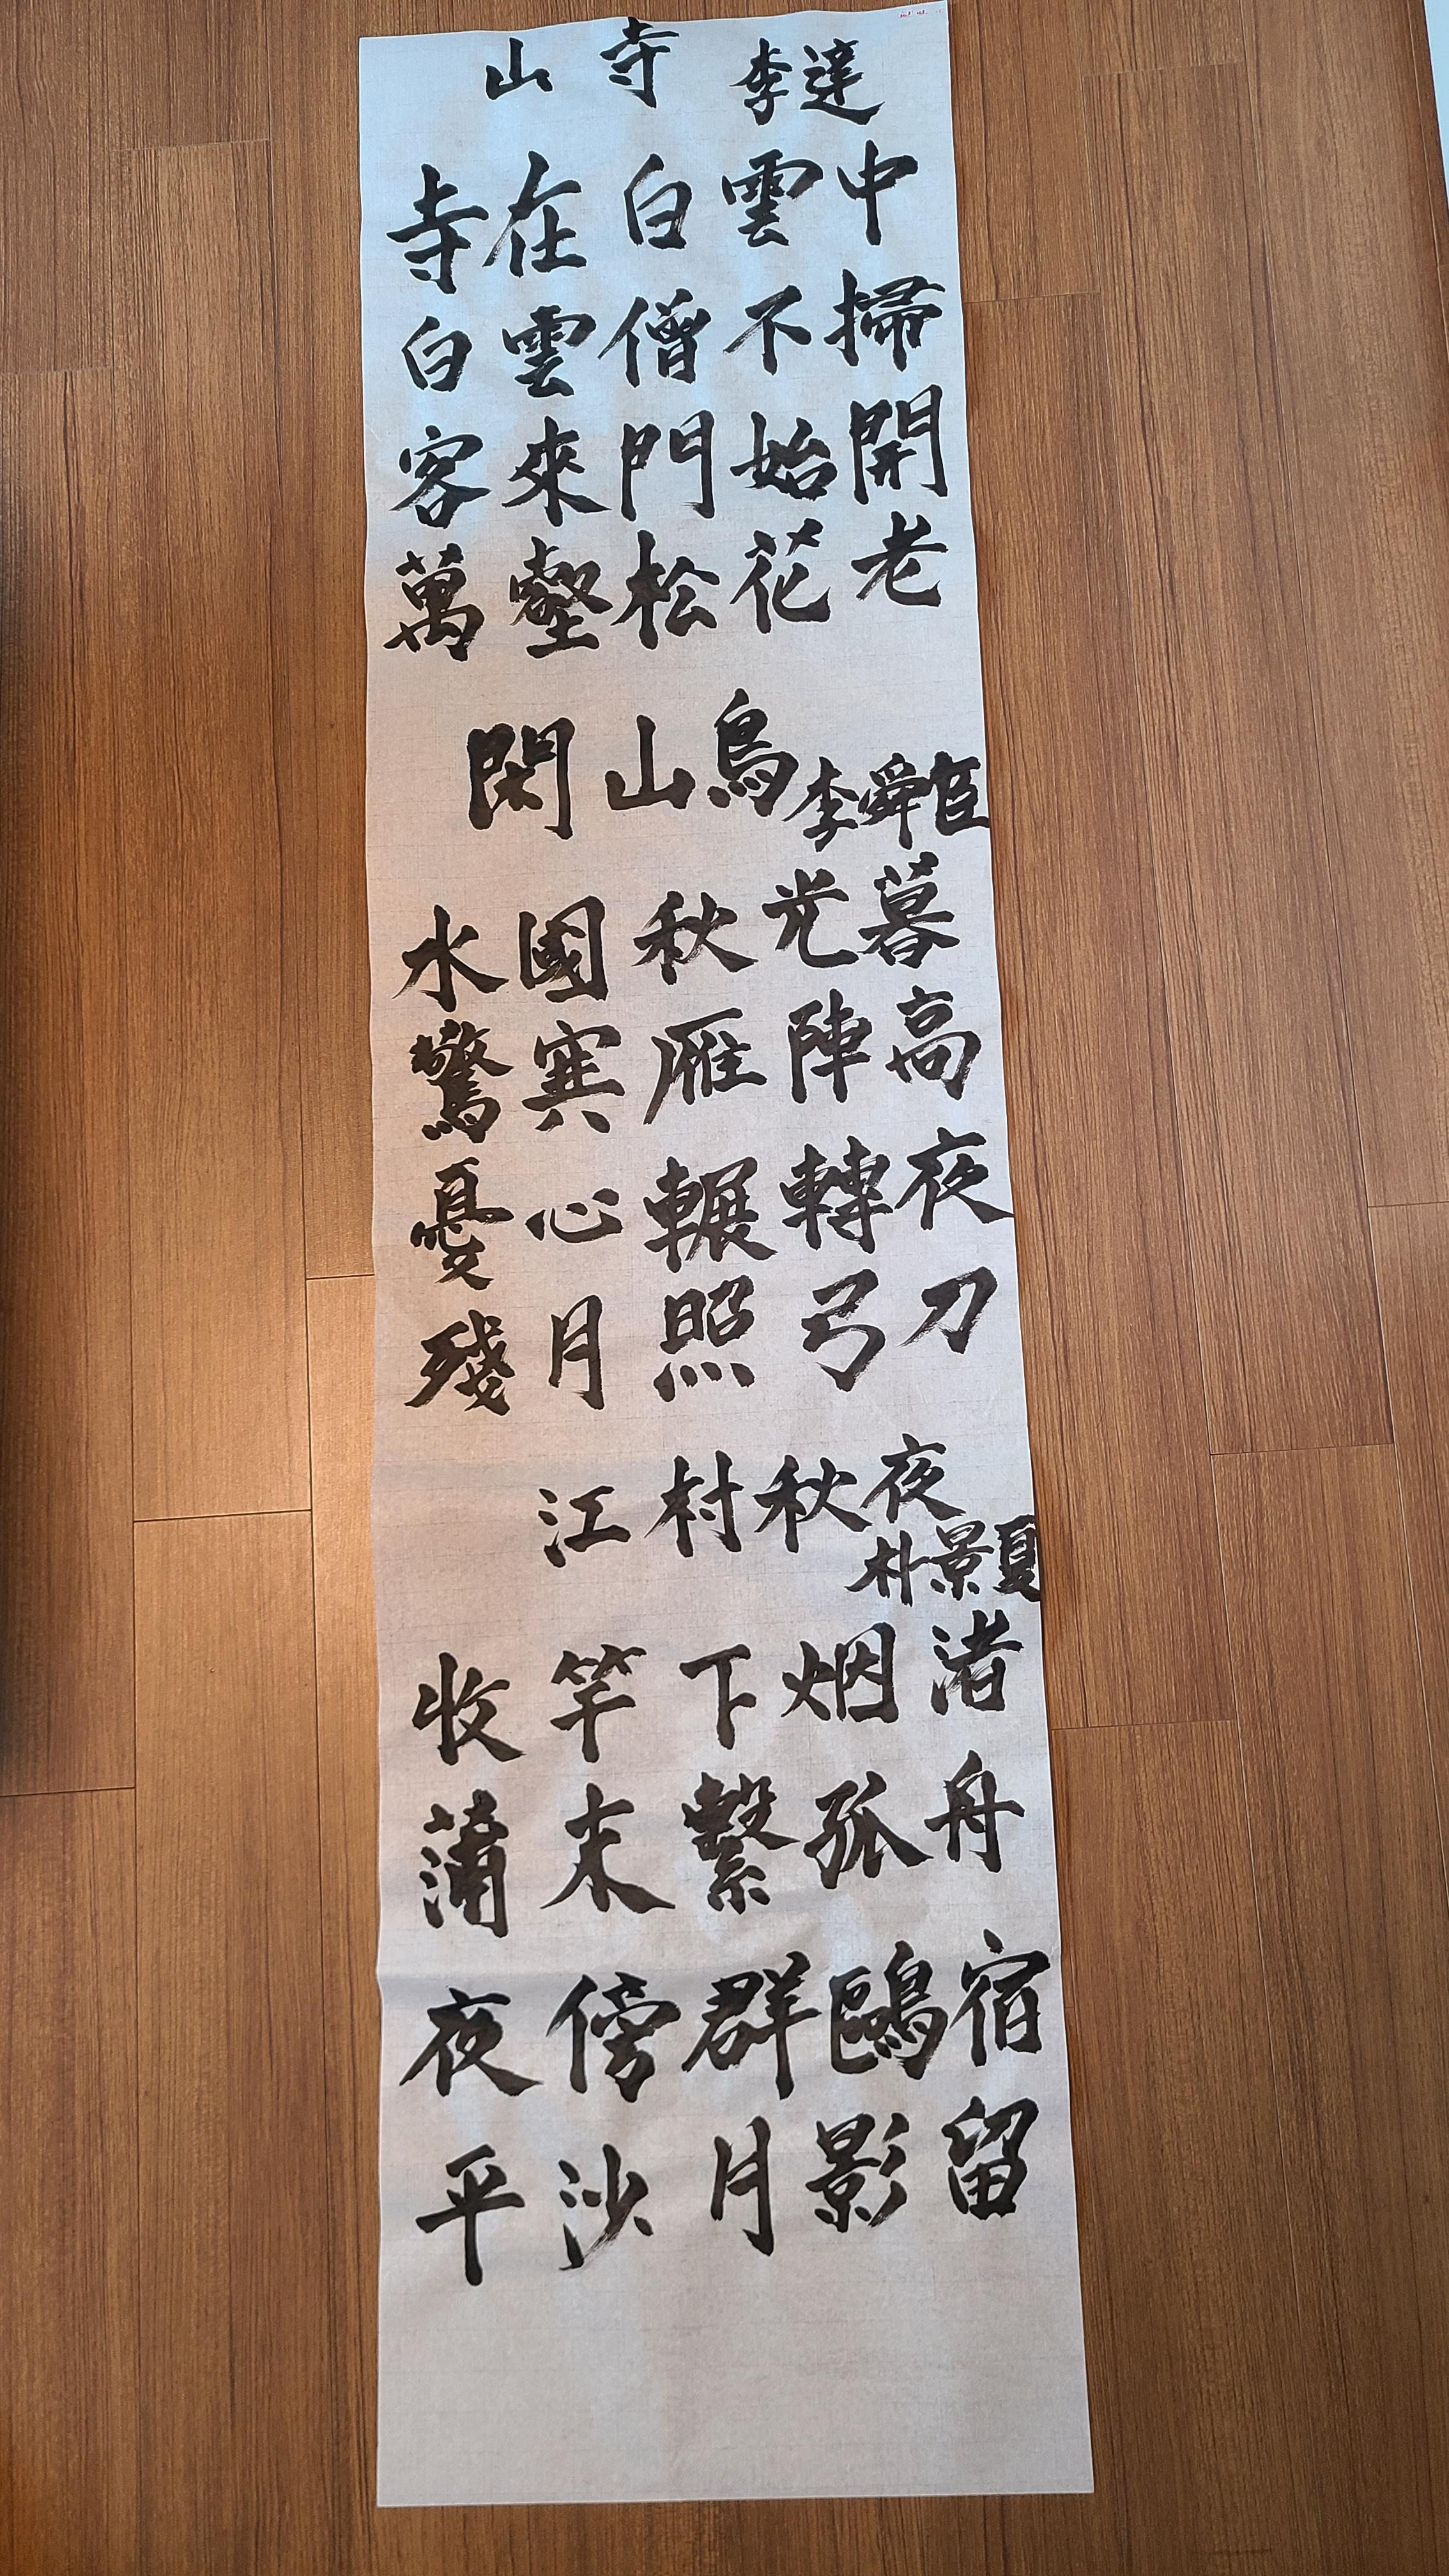 山寺 李達
寺在白雲中
白雲僧不掃
客來門始開
萬壑松花老
閑山島 李舜臣
水國秋光暮
驚寒雁陣高
憂心輾轉夜
殘月照弓刀
江村秋夜
朴景夏
收竿下烟渚
蒲末繫孤舟
夜傍群鷗宿
平沙月影留